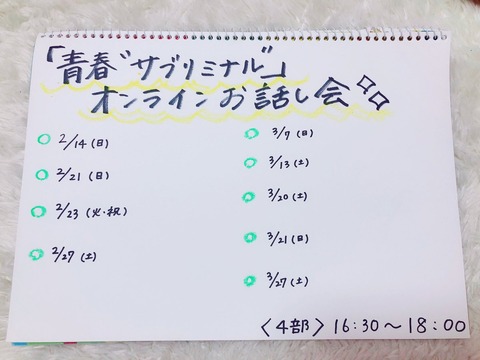 「青春"サブリミナル"」
オンラインお話し会
2/14(日)
2/21(日)
2/23(火・祝)
2/27(土)
3/7(日)
3/13(土)
3/20(土)
3/21(日)
3/27(土)
〈4部〉16:30〜18:00